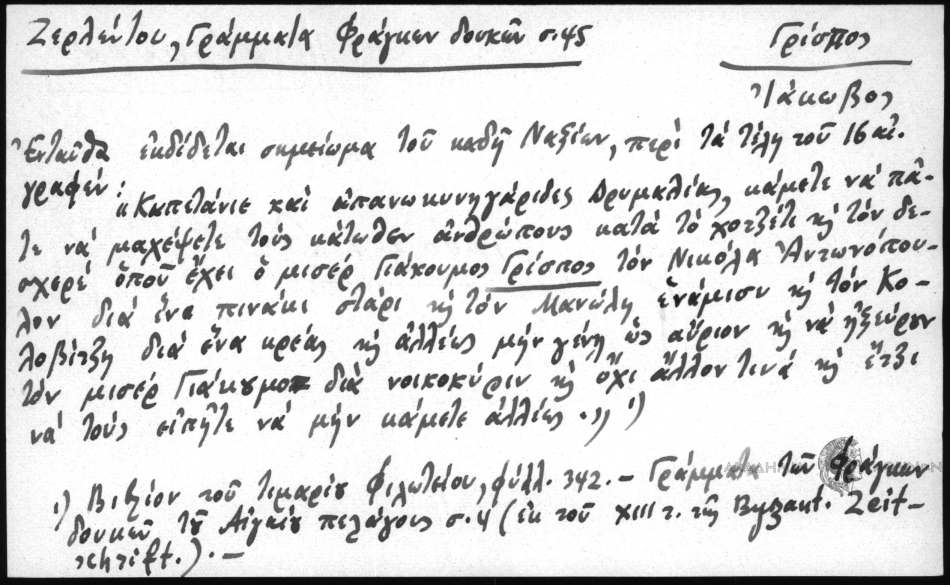 Ζερλέντου, Γράμματα Φράγκων δουκῶν σ. 45
Γρίσπος
Ἰάκωβος
Ἐνταῦθα ἐκδίδεται σημείωμα τοῦ καδῆ Ναξίων, περί τά τέλη τοῦ 16 αἰ.
γραφέν:
"Καπετάνιε καί ἀπανωκυνηγάριδες Δρυμαλίας, κάμετε νά πᾶ-
τε νά μαχέψετε τούς κάτωθεν ἀνθρώπους κατά τό χοτζέτι κῆ τόν δε-
σχερέ ὁποῦ ἔχει ὁ μισέρ Γιάκουμος Γρίσπος τόν Νικόλα Ἀντωνόπου-
λον διά ἕνα πινάκι στάρι κῆ τόν Μανώλη ἑνάμισυ κῆ τόν Κο-
λοβίτζη διά ἕνα κρέας κῆ ἀλλέως μήν γένῃ ὡς αὔριον κῆ νά ἠξεύρουν
τόν μισέρ Γιάκουμο διά νοικοκύριν κῆ ὄχι ἄλλον τινά κῆ ἔτζι
νά τούς εἰπῆτε νά μήν κάμετε ἀλλέως." 1)
1) Βιβλίον τοῦ τιμαρίου Φιλωτείου, φύλλ. 342. - Γράμματα τῶν Φράγκων
δουκῶν τοῦ Αἰγαίου πελάγους σ. 4 (ἐκ τοῦ XIII τ. τῆς Byzant. Zeit-
schrift.). -